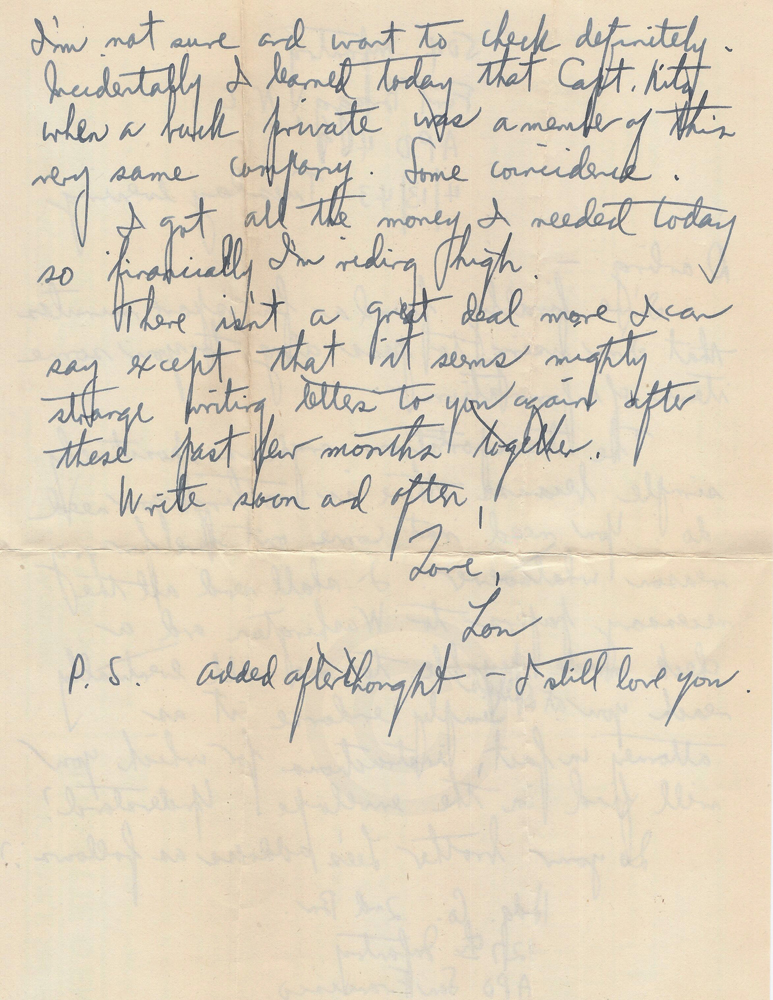 I'm not sure and want to check definitely.
Incidentally I learned today that Capt.
when a buck private was a member of this
very same company. Some coincidence.
I got all the money I needed today
so financially I'm riding high.
There isn't a great deal more I can
say except that it seems mighty
strange writing letters to you again after
these past few months together.
Write soon and often,
Love,
Lou
P. S. Added afterthought – I still love you.